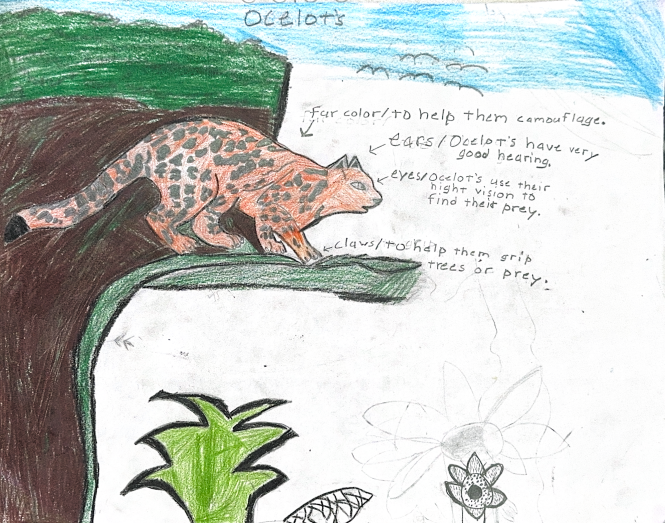 Ocelot's
Fur color/to help them camouflage.
ears/Ocelot's have very
good hearing.
eyes/Ocelot's use their
night vision to
find their prey.
claws/to help them grip
trees or prey.